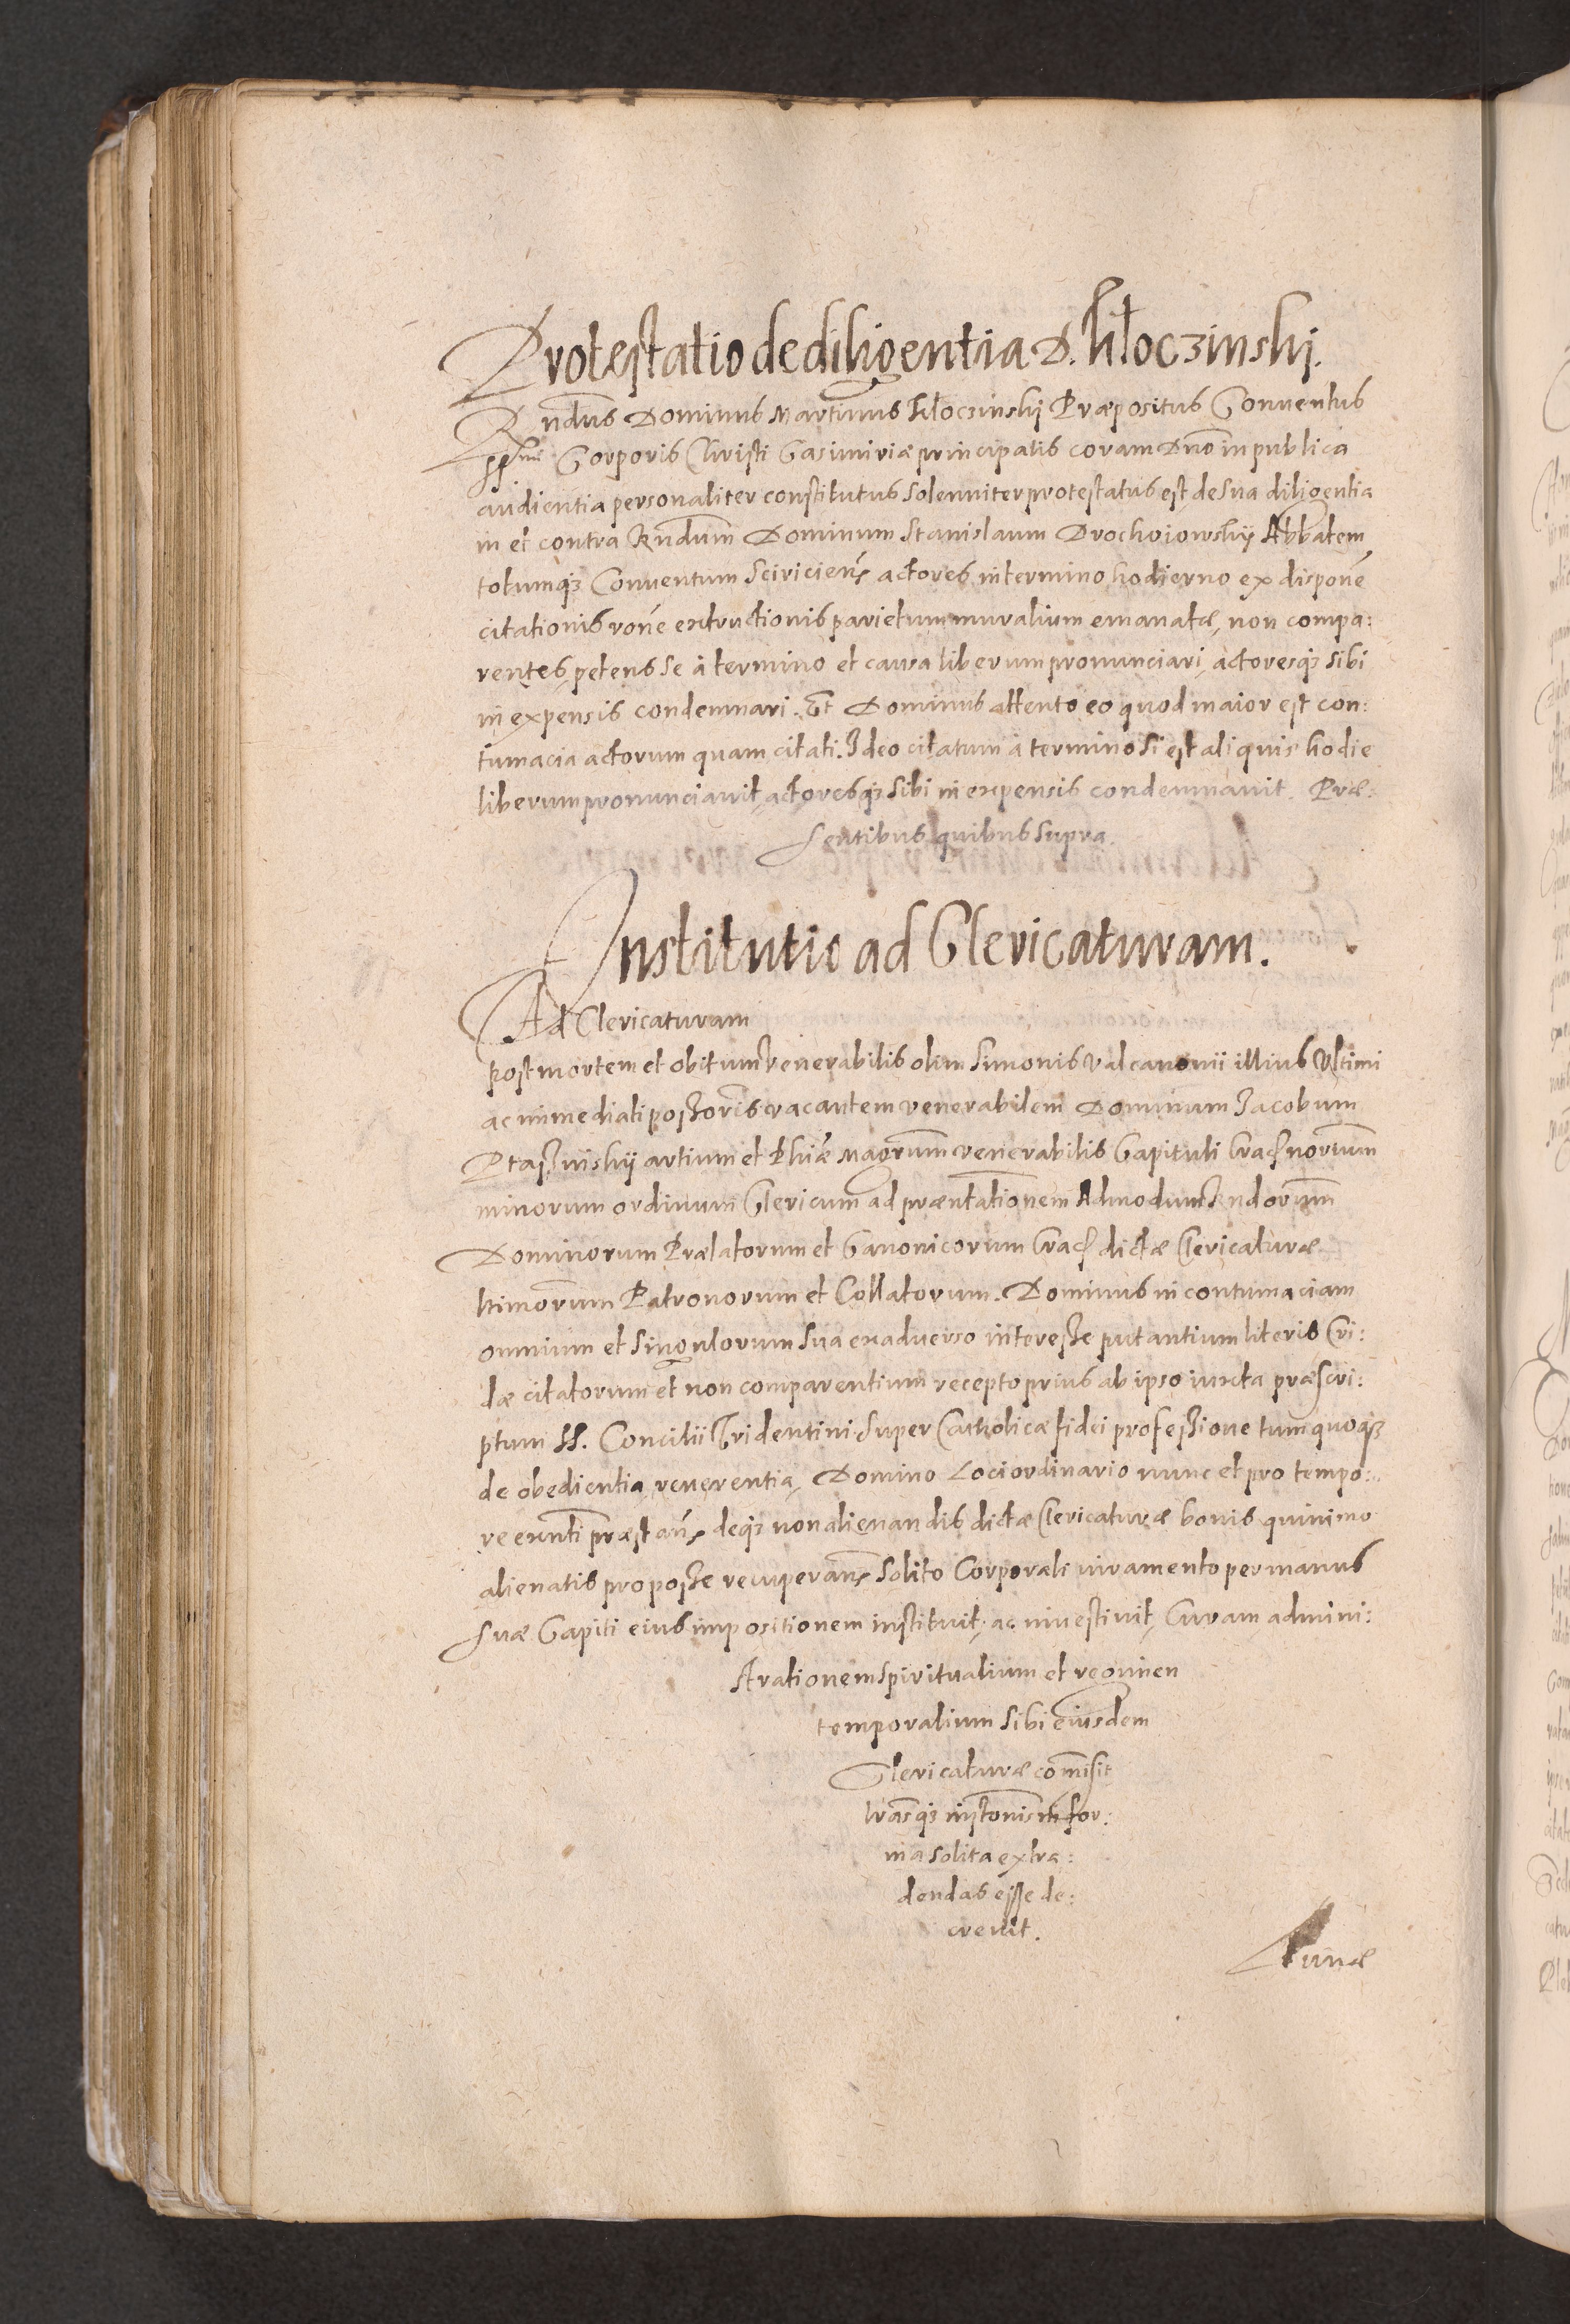 Protestatio de diligentia D. Kłoczinskj.
Rndūs Dominus Martinus Kłoczinskj Præpositus Conuentus
SSmi Corporis Christi Casimiriæ principalis coram Dnō in publica
audientia personaliter constitutus solenniter protestatus est de sua diligentia
in et contra Rndūm Dominum Stanislaum Drochoiowskÿ Abbatem
totumqȝ Conuentum Sciricień actores in termino hodierno ex disponē
citationis ronē extructionis parietum muralium emanatæ, non compa:
rentes, petens se à termino et causa liberum pronunciari, actoresqȝ sibi
in expensis condemnari. Et Dominus attento eo quod maior est con:
tumacia actorum quam citati. Ideo citatum à termino si est aliquis hodie
liberum pronunciauit, actoresqȝ sibi in expensis condemnauit. Præ:
sentibus quibus supra.
Institutio ad Clericaturam.
Ad Clericaturam
post mortem et obitum venerabilis olim Simonis Valcanonii illius Vltimi
ac immediati possoris vacantem venerabilem Dominum Jacobum
Ptassinskÿ artium et Phiæ Magrum venerabilis Capituli Crac̄ nortum
minorum ordinum Clericum ad præntationem Admodum Rndorum
Dominorum Prælatorum et Canonicorum Crac̄ dictæ Clericaturæ
ltimorum Patronorum et Collatorum. Dominus in contumaciam
omnium et singulorum sua ex aduerso interesse putantium literis Cri:
dæ citatorum et non comparentium recepto prius ab ipso iuxta præscri:
ptum SS. Concilii Tridentini super Catholicæ fidei professione tum quoqȝ
de obedientia, reuerentia, Domino Loci ordinario nunc et pro tempo:
re exnti præstań deqȝ non alienandis dictæ Clericaturæ bonis quinimo
alienatis pro posse recuperań solito Corporali iuramento per manus
suæ Capiti eius impositionem instituit, ac inuestiuit, Curam admini:
strationem spiritualium et regimen
temporalium sibi eiusdem
Clericaturæ com̄isit
lrasqȝ instonis in for:
ma solita extra:
dendas esse de:
creuit.